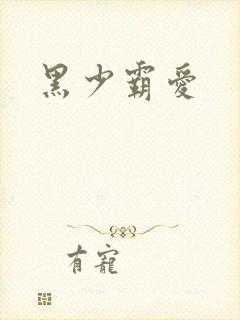 黑少霸爱
有寵